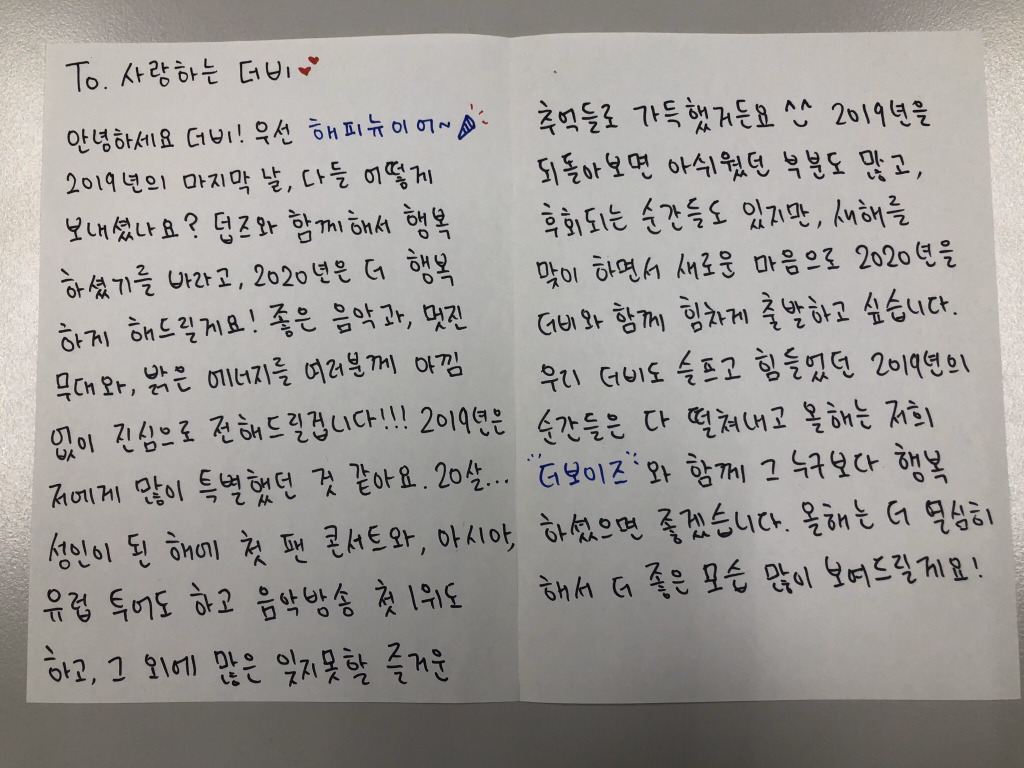 To. 사랑하는 더비
안녕하세요 더비! 우선 해피뉴이어~
2019년의 마지막 날, 다들 어떻게
보내셨나요? 덥즈와 함께해서 행복
하셨기를 바라고, 2020년은 더 행복
하게 해드릴게요! 좋은 음악과, 멋진
무대와, 밝은 에너지를 여러분께 아낌
없이 진심으로 전해드릴겁니다!!! 2019년은
저에게 많이 특별했던 것 같아요. 20살...
성인이 된 해에 첫 팬 콘서트와, 아시아,
유럽 투어도 하고 음악방송 첫 1위도
하고, 그 외에 많은 잊지못할 즐거운
추억들로 가득했거든요 ^^ 2019년을
되돌아보면 아쉬웠던 부분도 많고,
후회되는 순간들도 있지만, 새해를
맞이 하면서 새로운 마음으로 2020년을
더비와 함께 힘차게 출발하고 싶습니다.
우리 더비도 슬프고 힘들었던 2019년의
순간들은 다 떨쳐내고 올해는 저희
"더보이즈"와 함께 그 누구보다 행복
하셨으면 좋겠습니다. 올해는 더 열심히
해서 더 좋은 모습 많이 보여드릴게요!